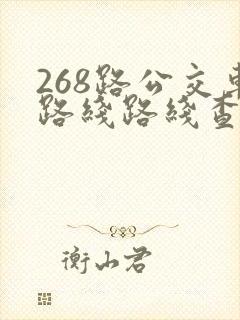 268路公交车
路线路线查
衡山君